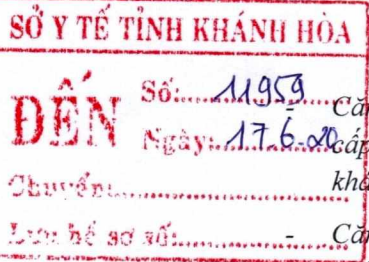 SỞ Y TẾ TỈNH KHÁNH HÒA
ĐẾN
Số:..... 11959
Ngày:.... 17.6.20
Chuyển:.....................
Lưu hồ sơ số:...............
- Căn
cấp
khá
- Căn